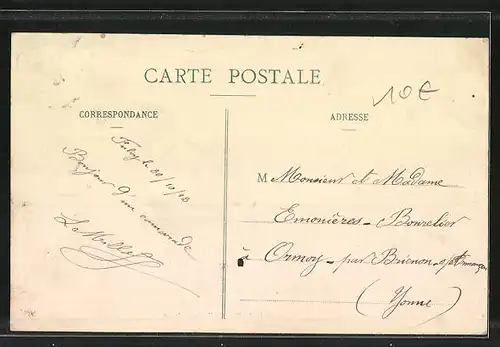 CARTE POSTALE
10€
CORRESPONDANCE
le 20/10/13
Bonjour
ADRESSE
M Monsieur et Madame
Emonières - Bourrelier
à Ormoy - par Brienon - s/ Armançon
(Yonne)